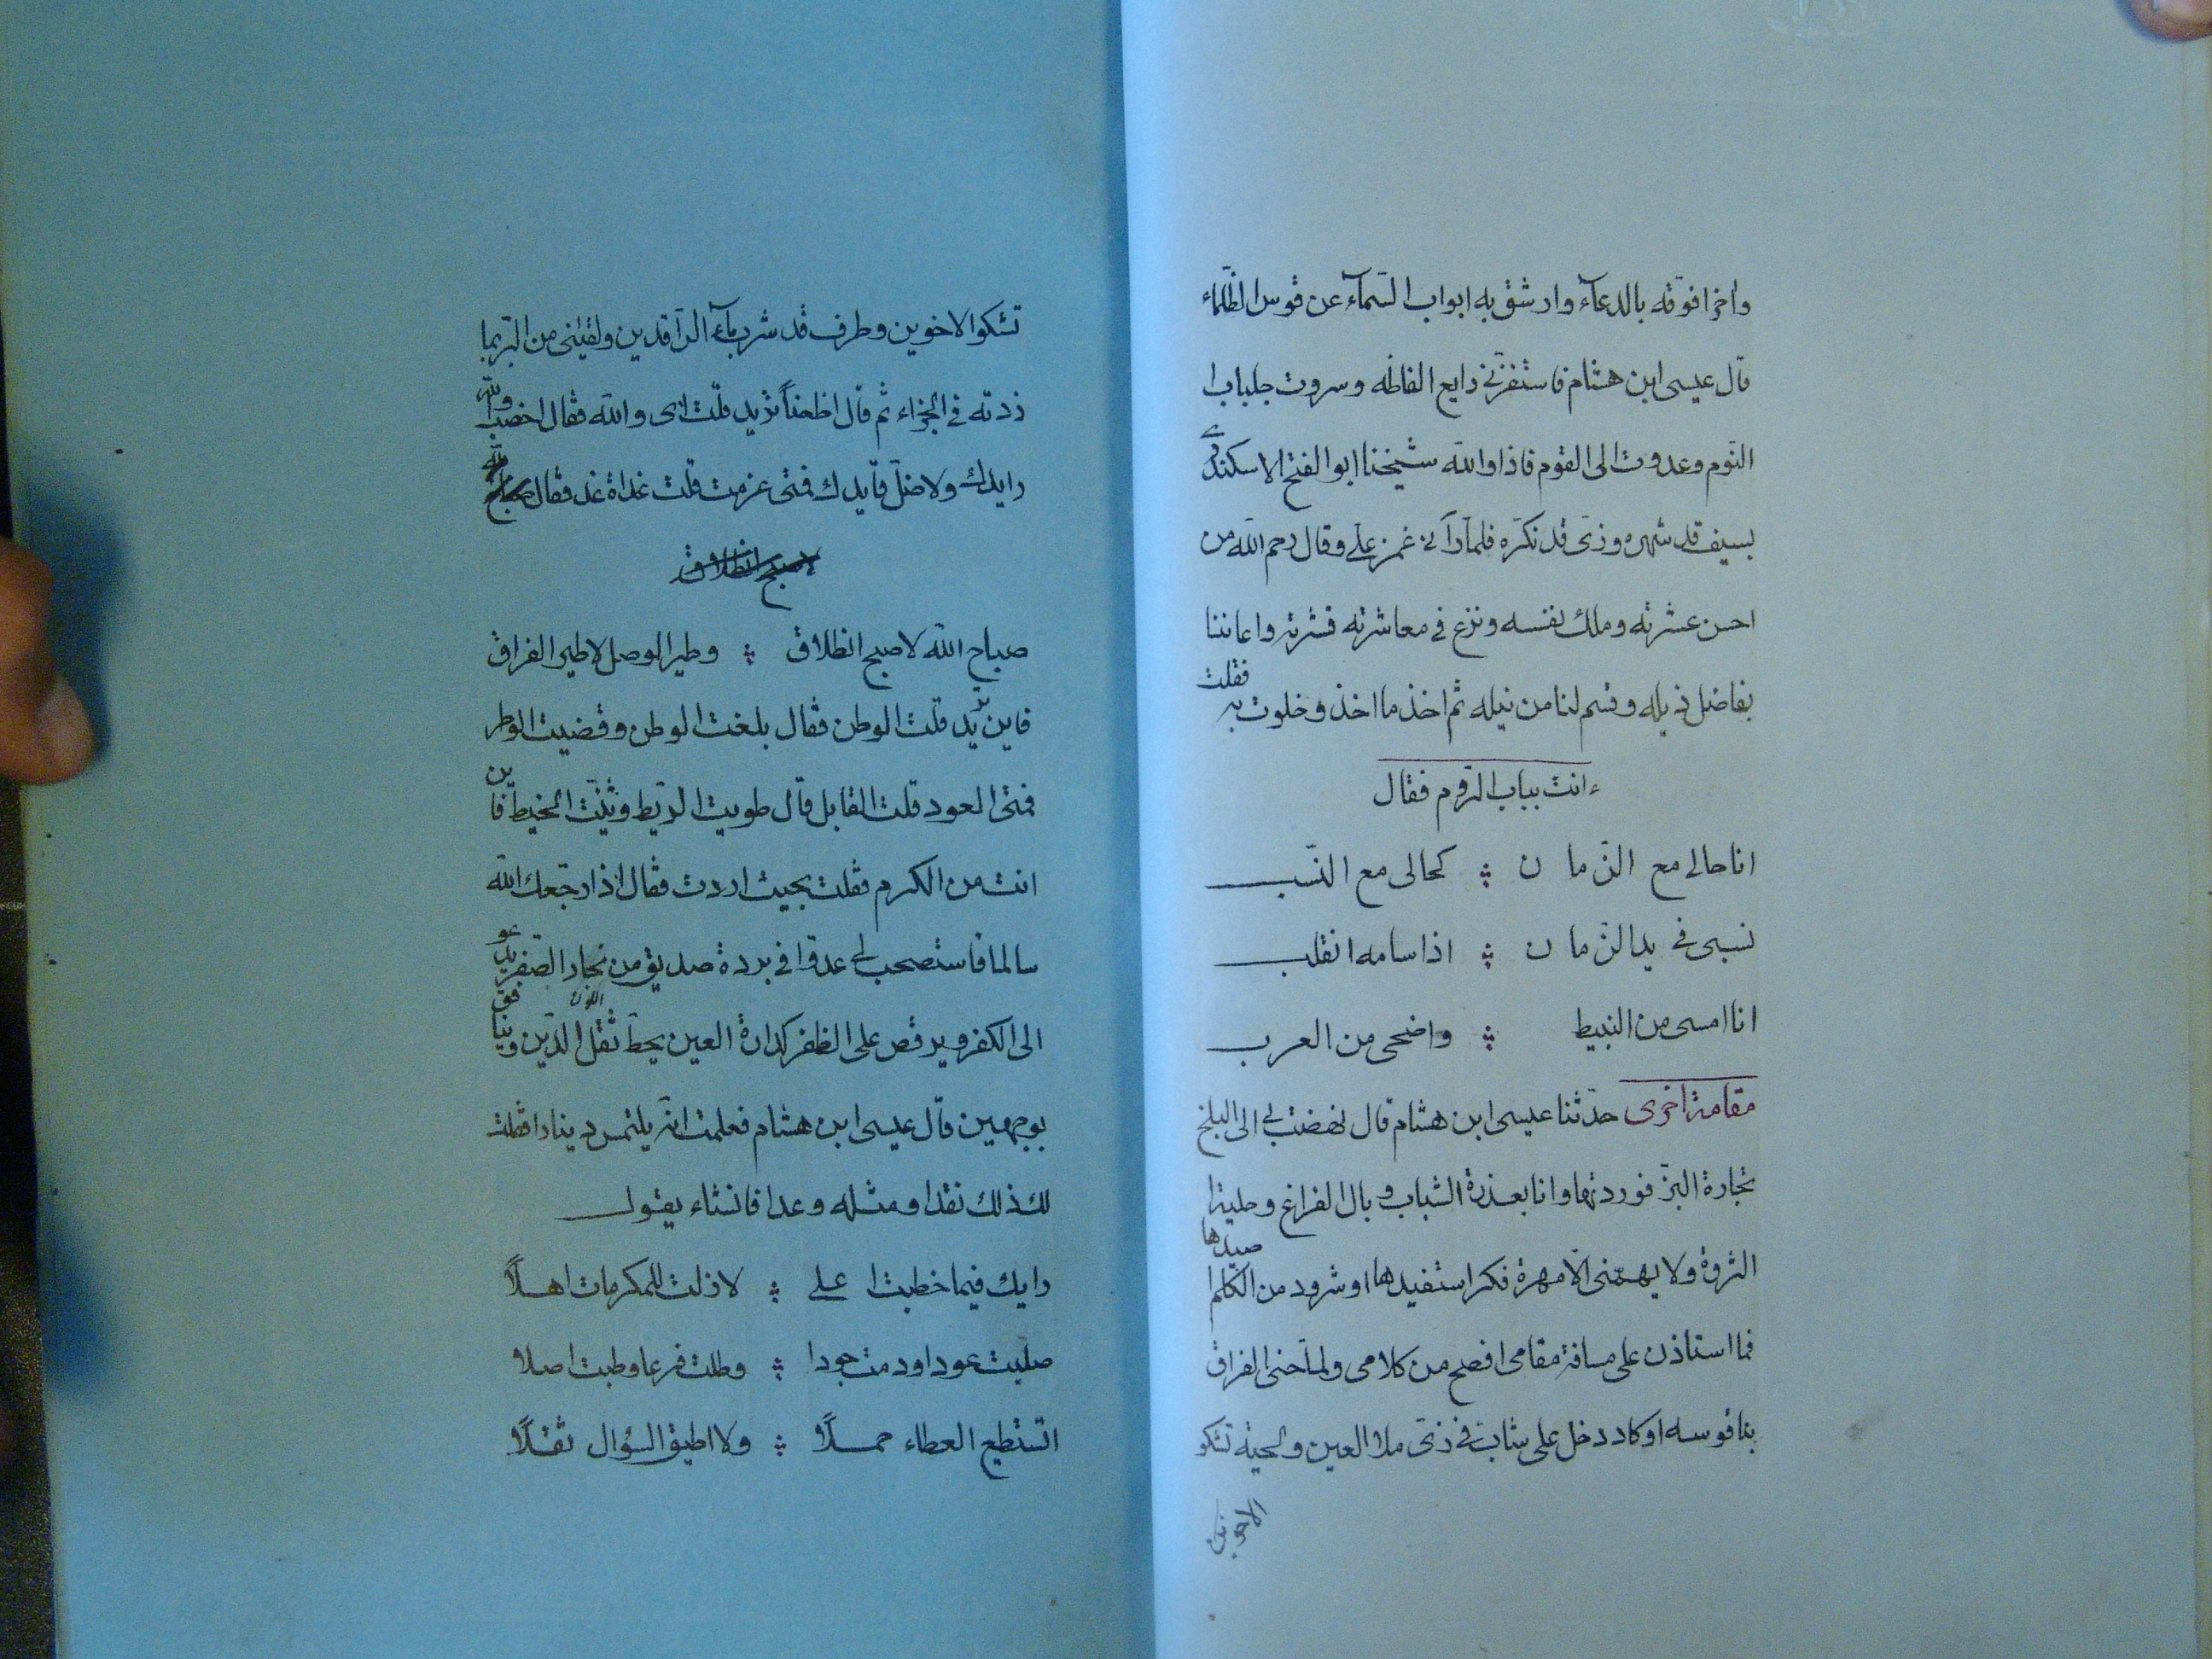 واخر افوقه بالدعآء وارشق به ابواب السّمآء عن قوس الظّلماء
قال عيسى ابن هشام فاستفزّنی رايع الفاظه وسروت جلباب
النّوم وعدوت الى القوم فاذا والله شيخنا ابو الفتح الاسكندرى
بسيف قد شهره وزىّ قد نكّره فلمّا رآنی غمز علىّ وقال رحم الله من
احسن عشرته وملك نفسه ونزع فى معاشرته قشرته واعاننا
بفاضل ذيله وقسم لنا من نيله ثم اخذ ما اخذ وخلوت به فقلت
ءانت بباب الرّوم فقال
انا حالى مع الزّمان ؞ كحالى مع النّسب
نسبى فى يد الزّمان ؞ اذا سامه انقلب
انا امسى من النبيط ؞ واضحى من العرب
مقامة اخرى حدّثنا عيسى ابن هشام قال نهضت بى الى البلخ
تجارة البزّ فوردتها وانا بعذرة الشباب وبال الفراغ وحلية
الثروة ولا يهمّنى الّا مهرة فكر استفيدها او شرود من الكلم اصيدها
فما استاذن على مسافة مقامى افصح من كلامى ولمّا حنى الفراق
بنا قوسه او كاد دخل على شابّ فى زىّ ملأ العين ولحية تشكو
الاخوين
تشكوا الاخوين وطرف قد شرب مآء الرّافدين ولقينى من البرّ بما
زدته فى الجزاء ثم قال اظعناً تريد قلت اى والله فقال اخصب والله
رايدك ولا ضلّ قايدك فمتى عزمت قلت غداة غد فقال
لا صبح انطلاق
صباح الله لا صبح انطلاق ؞ وطير الوصل لا طير الفراق
فاين تريد قلت الوطن فقال بلغت الوطن وقضيت الوطر
فمتى العود قلت القابل قال طويت الرّيط وثنيت الخيط فاين
انت من الكرم فقلت بحيث اردت فقال اذا رجّعك الله
سالما فاستصحب لى عدوّا فى بردة صديق من نجار الصّفر يدعو
الى الكفر ويرقص على الظفر كدارة العين يحطّ ثقل الدّين وينافق
بوجهين قال عيسى ابن هشام فعلمت انّه يلتمس دينارا فقلت
لك ذلك نقدا ومثله وعدا فانشاء يقول
رايك فيما خطبت اعلى ؞ لا زلت للمكرمات اهلاً
صلبت عودا ودمت جودا ؞ وطلت فرعا وطبت اصلا
استطيع العطاء حملاً ؞ ولا اطيق السؤال ثقلاً